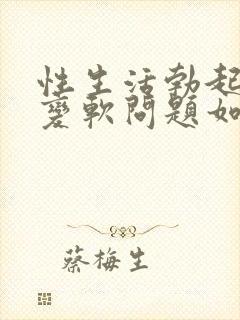 性生活勃起
变軟问題如
蔡梅生